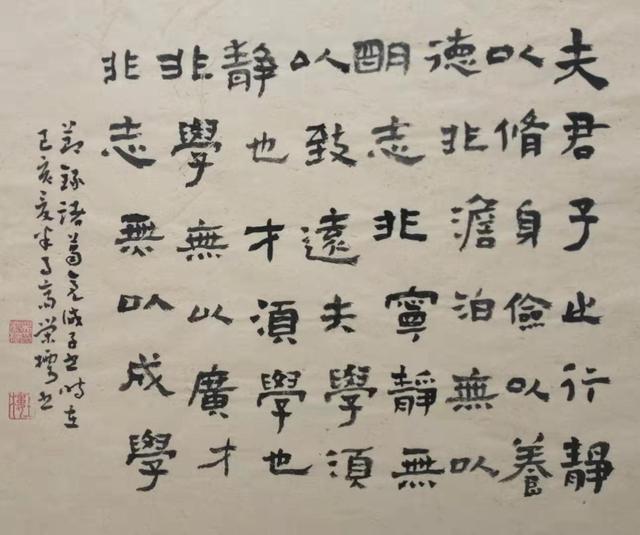 夫君子之行靜
以脩身儉以養
德非澹泊無以
明志非寧靜無
以致遠夫學須
靜也才須學也
非學無以廣才
非志無以成學
節錄諸葛亮誡子書時在
己亥夏